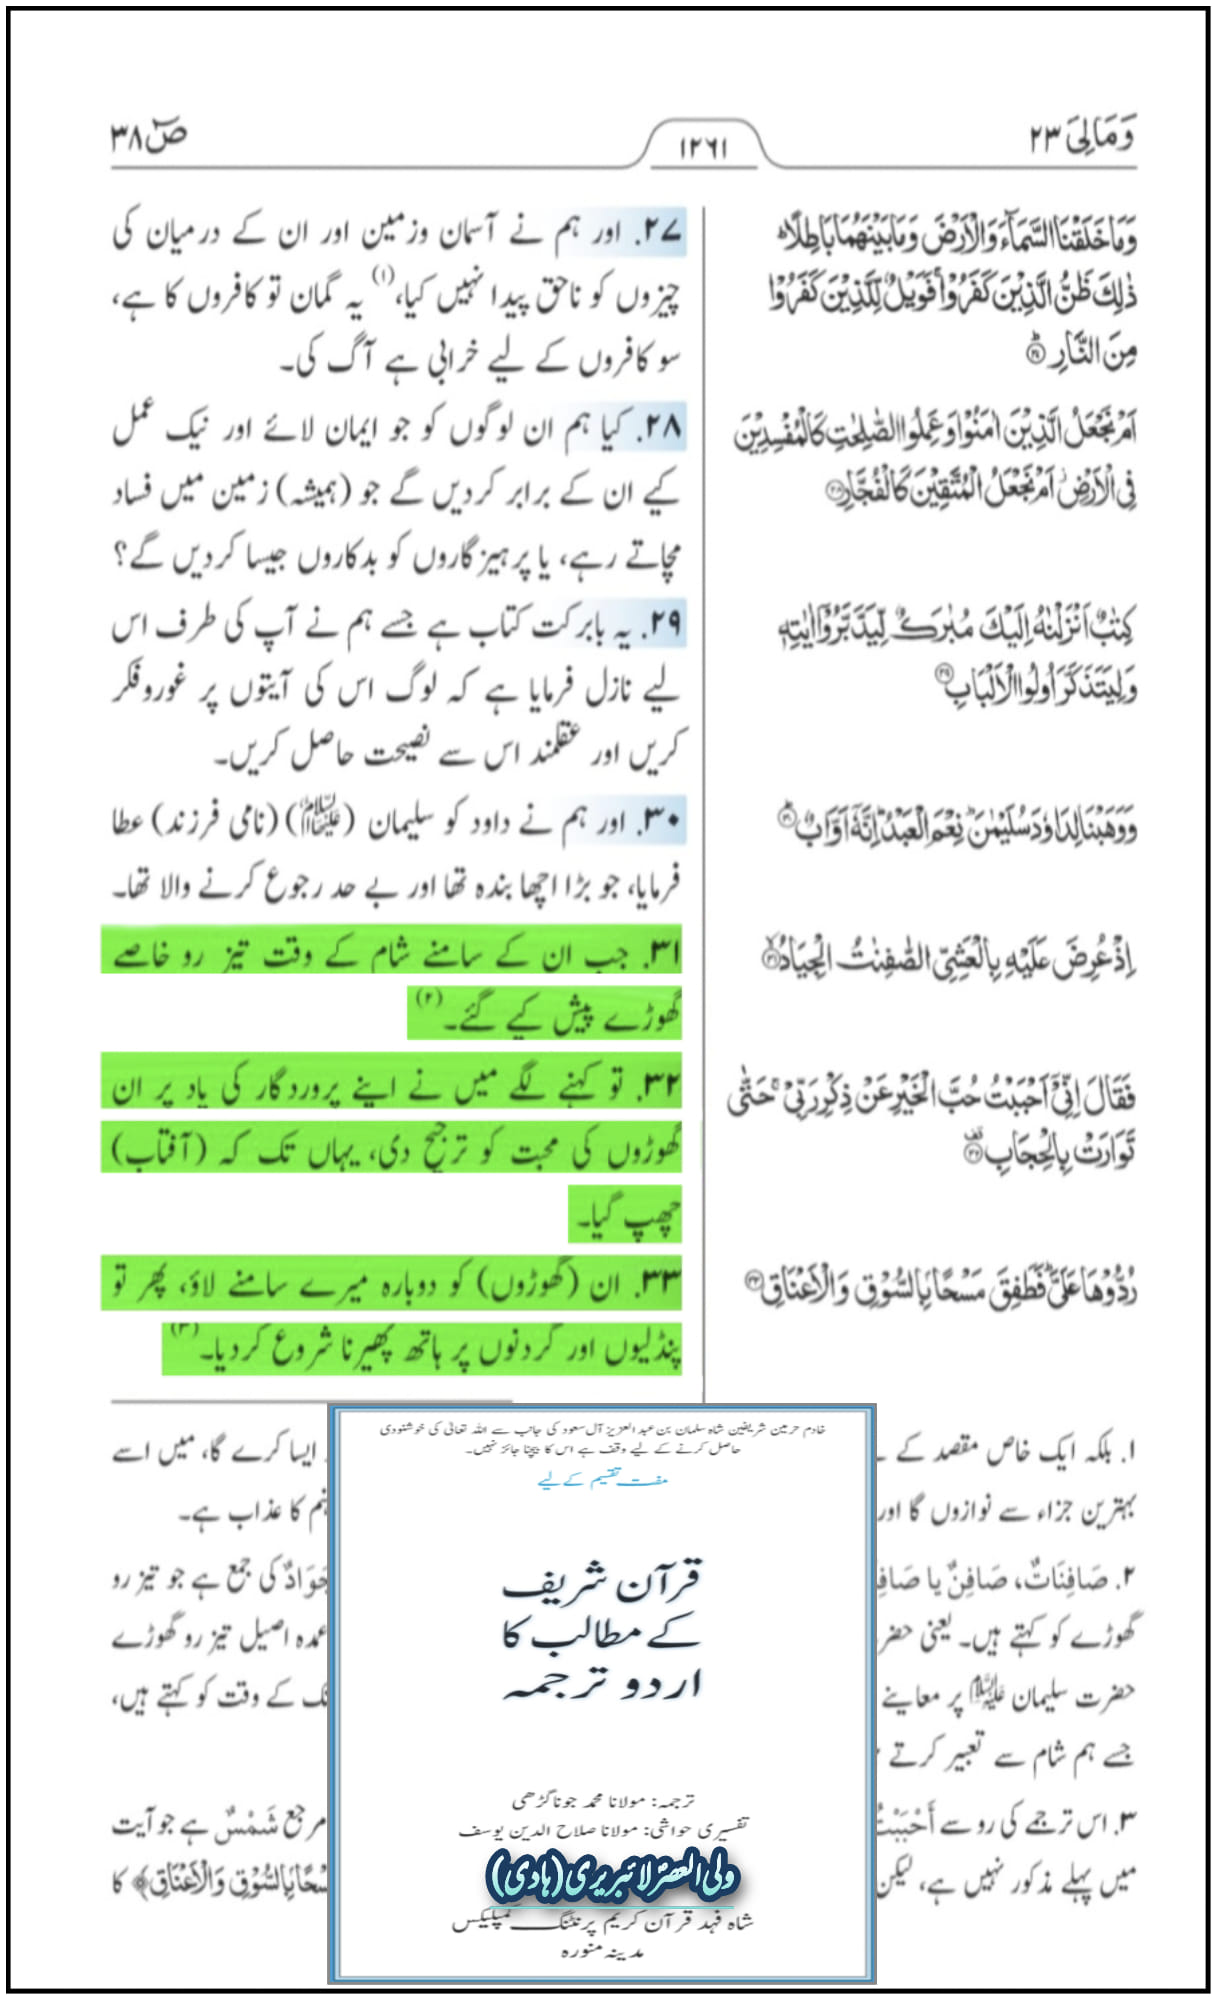 وَمَالِیَ ۲۳
۱۲٦۱
صٓ ۳۸
وَمَا خَلَقْنَا السَّمَآءَ وَالْاَرْضَ وَمَا بَيْنَهُمَا بَاطِلًا ؕ
ذٰلِكَ ظَنُّ الَّذِيْنَ كَفَرُوْا ۚ فَوَيْلٌ لِّلَّذِيْنَ كَفَرُوْا
مِنَ النَّارِ ؕ۝۲۷
اَمْ نَجْعَلُ الَّذِيْنَ اٰمَنُوْا وَعَمِلُوا الصّٰلِحٰتِ كَالْمُفْسِدِيْنَ
فِي الْاَرْضِ ؗ اَمْ نَجْعَلُ الْمُتَّقِيْنَ كَالْفُجَّارِ ۝۲۸
كِتٰبٌ اَنْزَلْنٰهُ اِلَيْكَ مُبٰرَكٌ لِّيَدَّبَّرُوْٓا اٰيٰتِهٖ
وَلِيَتَذَكَّرَ اُولُوا الْاَلْبَابِ ۝۲۹
وَوَهَبْنَا لِدَاوٗدَ سُلَيْمٰنَ ؕ نِعْمَ الْعَبْدُ ؕ اِنَّهٗٓ اَوَّابٌ ؕ۝۳۰
اِذْ عُرِضَ عَلَيْهِ بِالْعَشِيِّ الصّٰفِنٰتُ الْجِيَادُ ۙ۝۳۱
فَقَالَ اِنِّيْٓ اَحْبَبْتُ حُبَّ الْخَيْرِ عَنْ ذِكْرِ رَبِّيْ ۚ حَتّٰى
تَوَارَتْ بِالْحِجَابِ ۝۳۲
رُدُّوْهَا عَلَيَّ ؕ فَطَفِقَ مَسْحًۢا بِالسُّوْقِ وَالْاَعْنَاقِ ۝۳۳
۲۷. اور ہم نے آسمان وزمین اور ان کے درمیان کی
چیزوں کو ناحق پیدا نہیں کیا،(۱) یہ گمان تو کافروں کا ہے،
سو کافروں کے لیے خرابی ہے آگ کی۔
۲۸. کیا ہم ان لوگوں کو جو ایمان لائے اور نیک عمل
کیے ان کے برابر کردیں گے جو (ہمیشہ) زمین میں فساد
مچاتے رہے، یا پرہیزگاروں کو بدکاروں جیسا کردیں گے؟
۲۹. یہ بابرکت کتاب ہے جسے ہم نے آپ کی طرف اس
لیے نازل فرمایا ہے کہ لوگ اس کی آیتوں پر غوروفکر
کریں اور عقلمند اس سے نصیحت حاصل کریں۔
۳۰. اور ہم نے داود کو سلیمان (علیہما السلام) (نامی فرزند) عطا
فرمایا، جو بڑا اچھا بندہ تھا اور بے حد رجوع کرنے والا تھا۔
۳۱. جب ان کے سامنے شام کے وقت تیز رو خاصے
گھوڑے پیش کیے گئے۔(۲)
۳۲. تو کہنے لگے میں نے اپنے پروردگار کی یاد پر ان
گھوڑوں کی محبت کو ترجیح دی، یہاں تک کہ (آفتاب)
چھپ گیا۔
۳۳. ان (گھوڑوں) کو دوبارہ میرے سامنے لاؤ، پھر تو
پنڈلیوں اور گردنوں پر ہاتھ پھیرنا شروع کردیا۔(۳)
۱. بلکہ ایک خاص مقصد کے ایسا کرے گا، میں اسے
بہترین جزاء سے نوازوں گا اور کا عذاب ہے۔
۲. صَافِنَاتٌ، صَافِنٌ یا جَوَادٌ کی جمع ہے جو تیز رو
گھوڑے کو کہتے ہیں۔ یعنی عمدہ اصیل تیز رو گھوڑے
حضرت سلیمان علیہ السلام پر معاینے کے وقت کو کہتے ہیں،
جسے ہم شام سے تعبیر کرتے
۳. اس ترجمے کی رو سے أَحْبَبْتُ مرجع شَمْسٌ ہے جو آیت
میں پہلے مذکور نہیں ہے، لیکن بِالسُّوْقِ وَالْاَعْنَاقِ﴾ کا
خادم حرمین شریفین شاہ سلمان بن عبد العزیز آل سعود کی جانب سے اللہ تعالیٰ کی خوشنودی
حاصل کرنے کے لیے وقف ہے اس کا بیچنا جائز نہیں۔
مفت تقسیم کے لیے
قرآن شریف
کے مطالب کا
اردو ترجمہ
ترجمہ: مولانا محمد جوناگڑھی
تفسیری حواشی: مولانا صلاح الدین یوسف
ولی العصر لائبریری (ہادی)
شاہ فہد قرآن کریم پرنٹنگ کمپلیکس
مدینہ منورہ